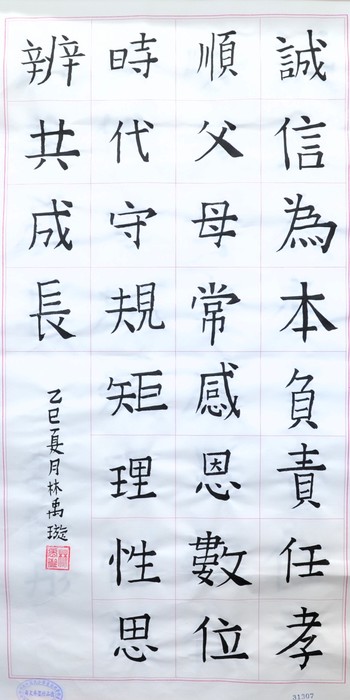 誠信為本負責任孝
順父母常感恩數位
時代守規矩理性思
辨共成長
乙巳夏月林禹璇
31307